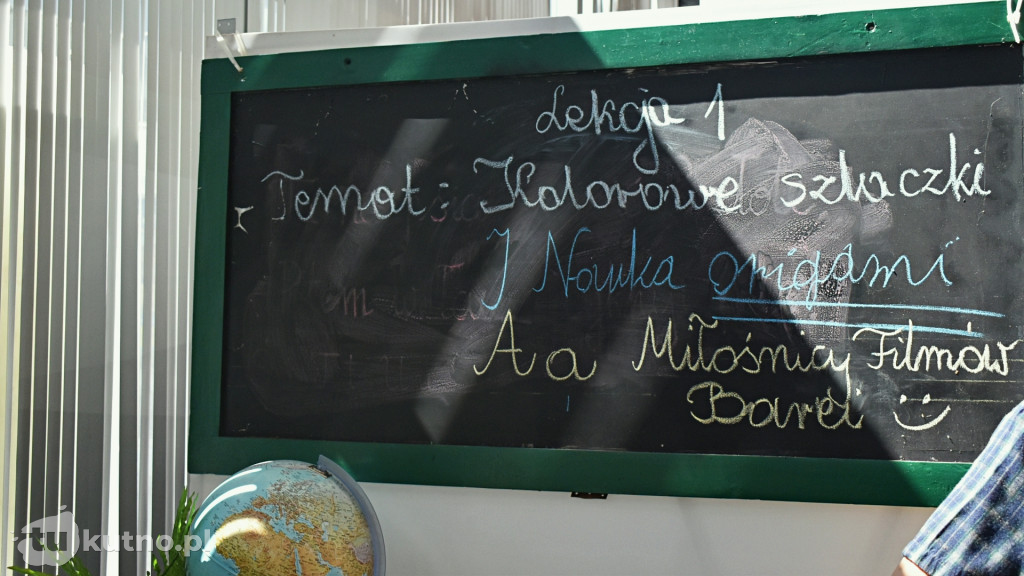 Lekcja 1
Temat: Kolorowe szlaczki
I Nauka origami
A a Miłośnicy Filmów
Barei
tukutno.pl